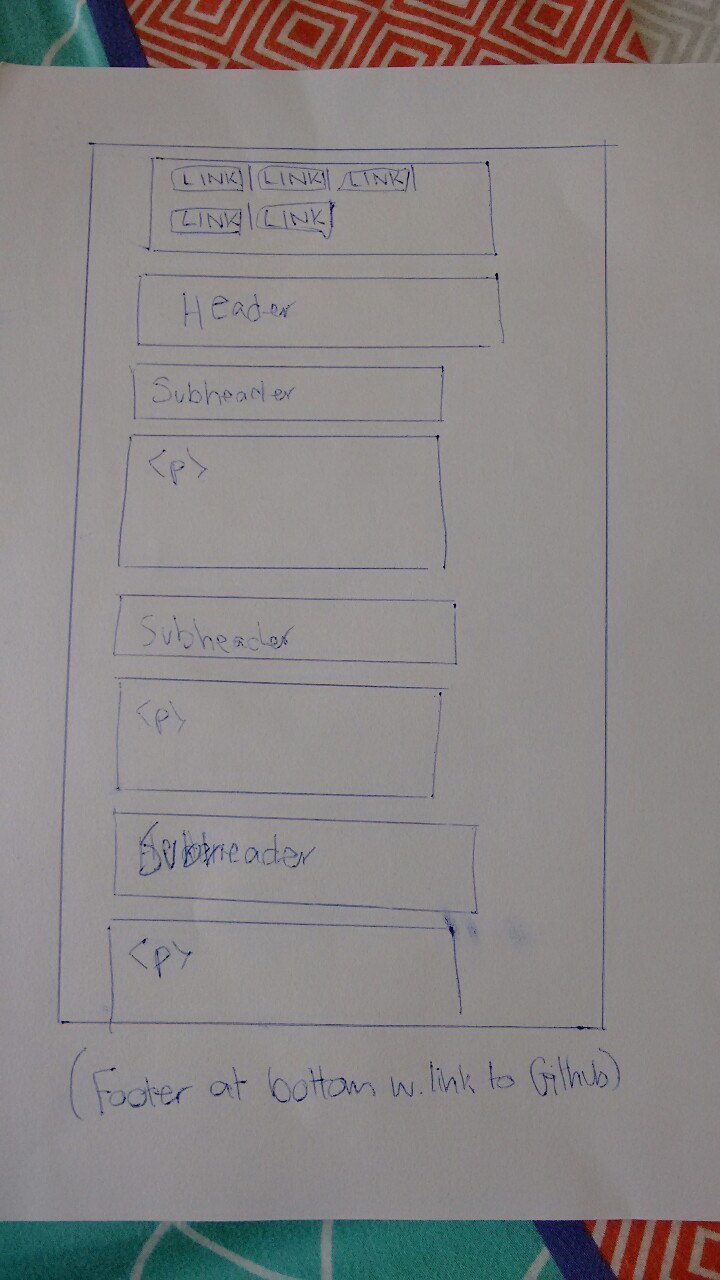 LINK | LINK | LINK |
LINK | LINK
Header
Subheader
<p>
Subheader
<p>
Subheader
<p>
(Footer at bottom w. link to Github)